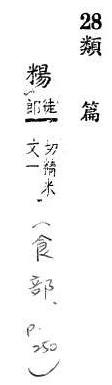 28 類篇
糃 徒郎切精米文一 (食部, p. 250)